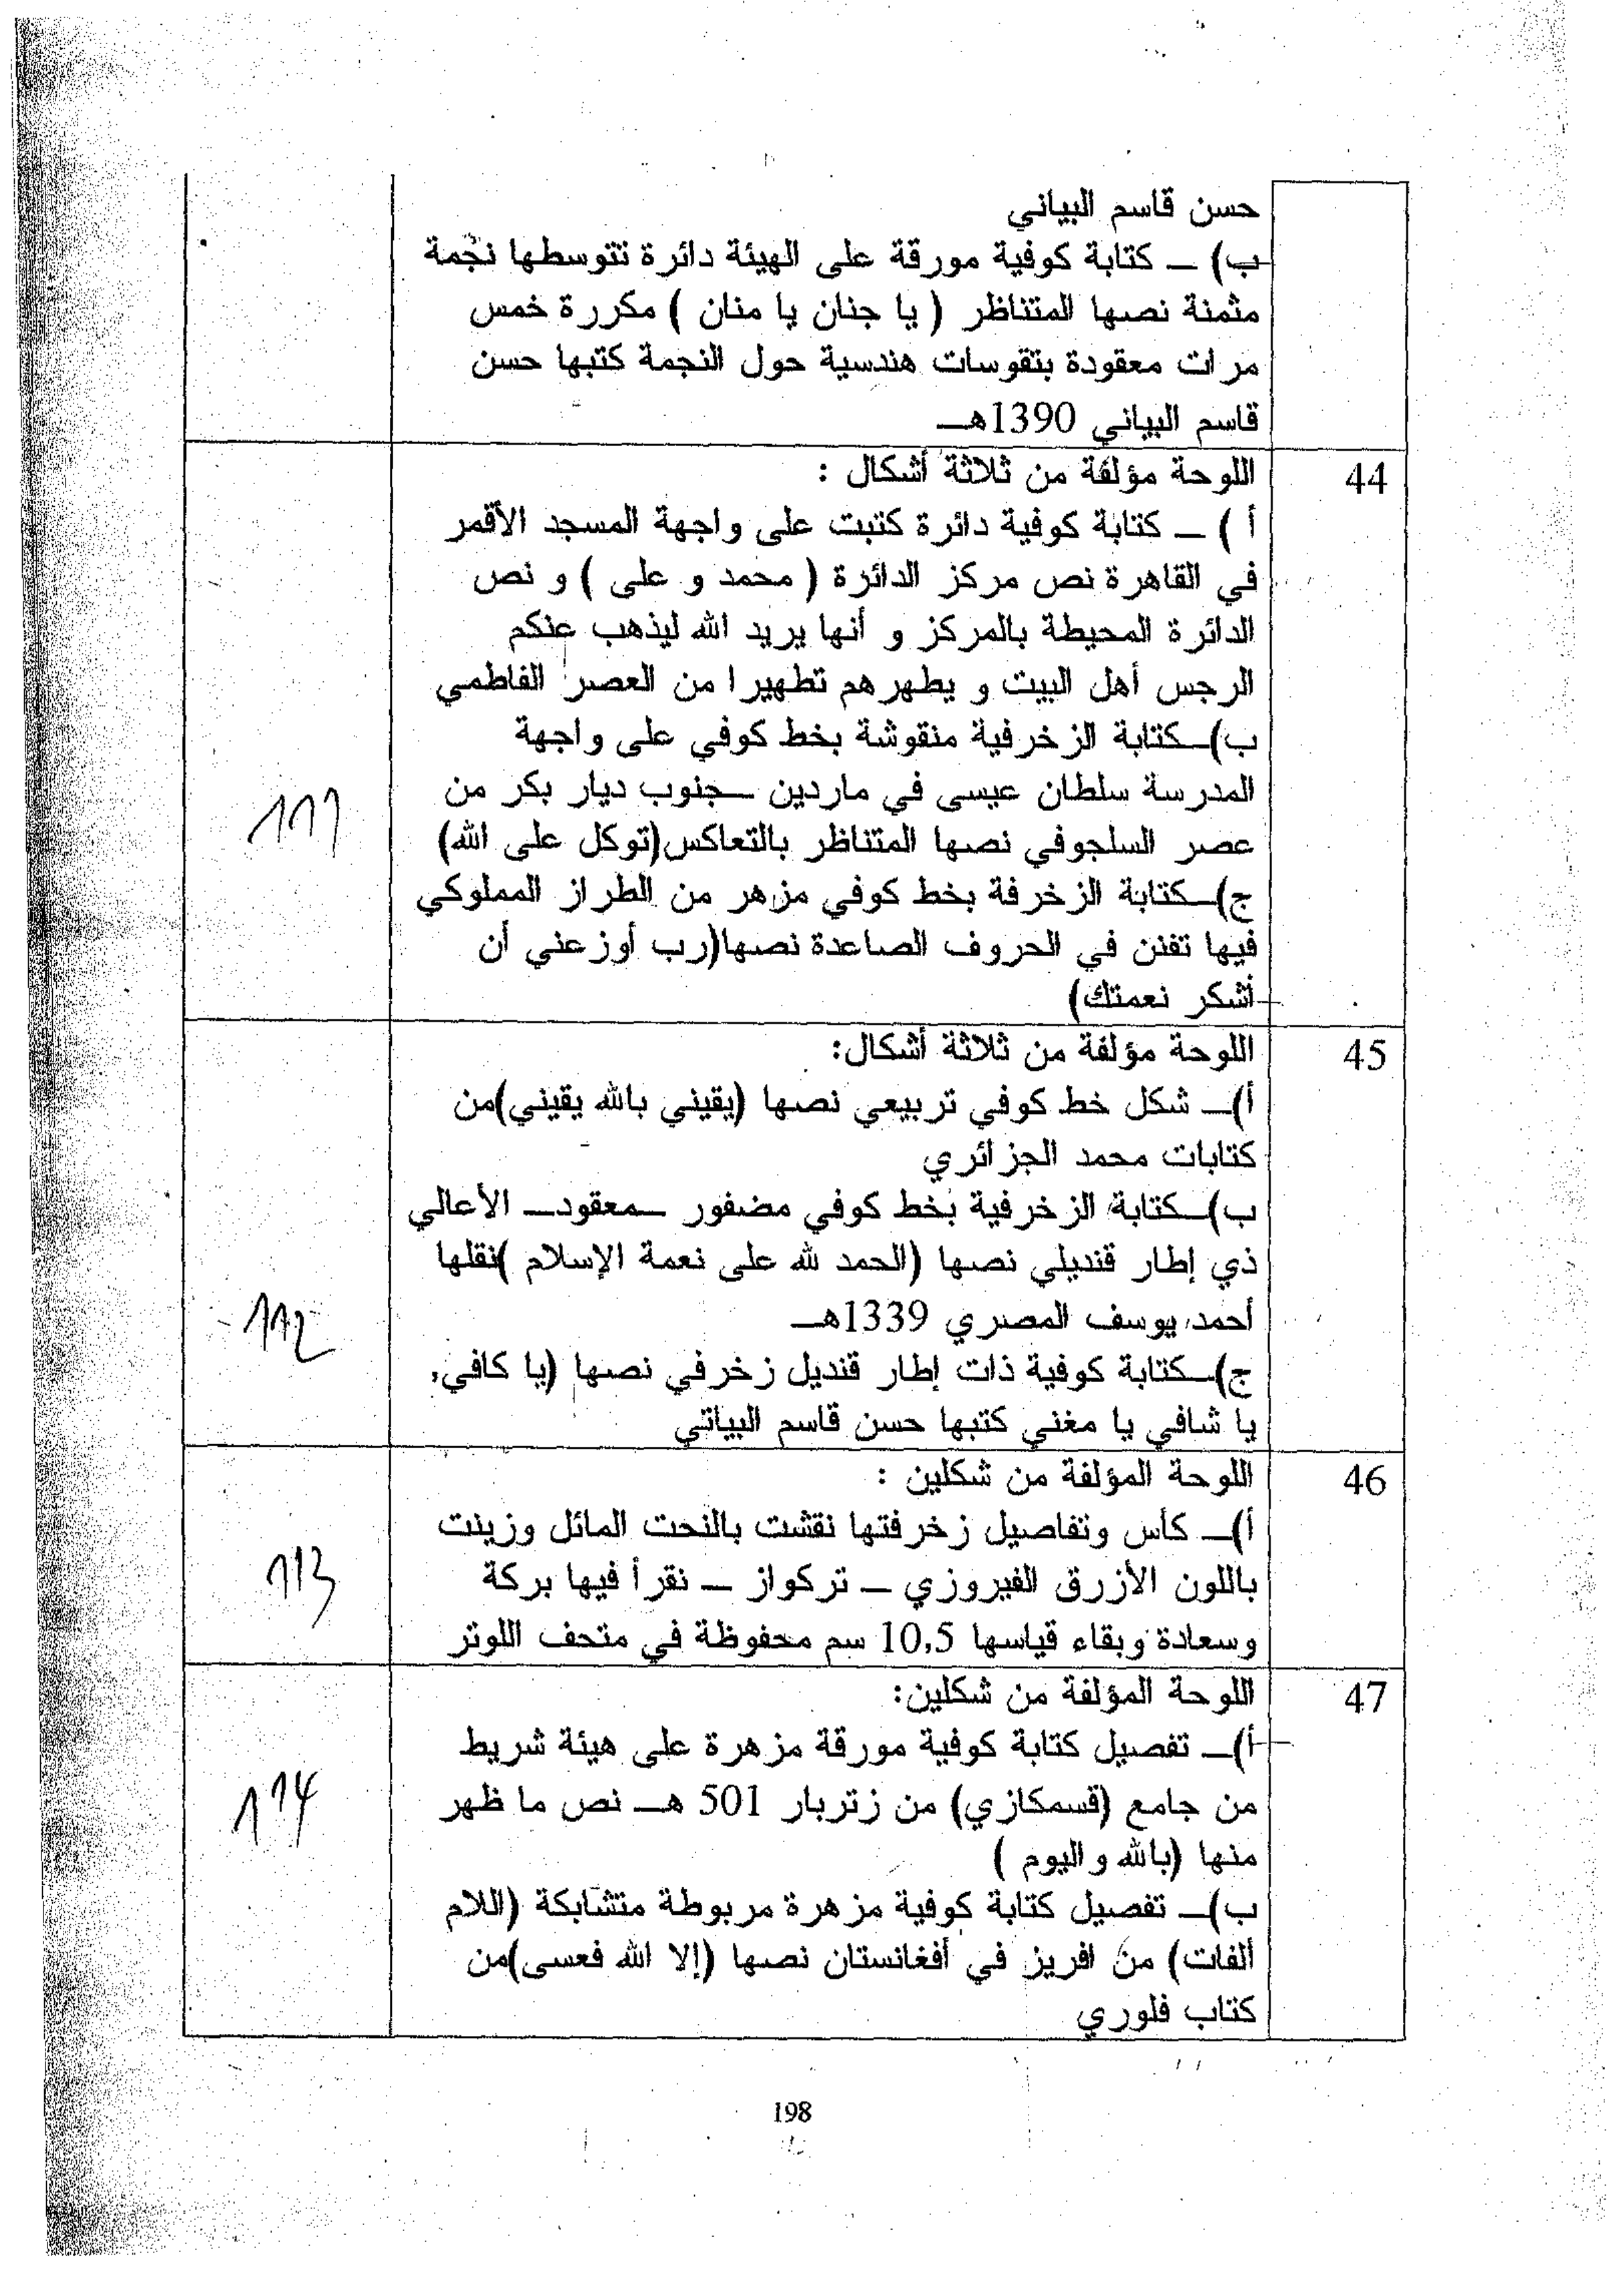 حسن قاسم البياني
ب) – كتابة كوفية مورقة على الهيئة دائرة تتوسطها نجمة
مثمنة نصها المتناظر ( يا جنان يا منان ) مكررة خمس
مرات معقودة بتقوسات هندسية حول النجمة كتبها حسن
قاسم البياني 1390هـ
44
اللوحة مؤلفة من ثلاثة أشكال :
أ ) – كتابة كوفية دائرة كتبت على واجهة المسجد الأقمر
في القاهرة نص مركز الدائرة ( محمد و على ) و نص
الدائرة المحيطة بالمركز و أنها يريد الله ليذهب عنكم
الرجس أهل البيت و يطهرهم تطهيرا من العصر الفاطمي
ب)–كتابة الزخرفية منقوشة بخط كوفي على واجهة
المدرسة سلطان عيسى في ماردين –جنوب ديار بكر من
عصر السلجوفي نصها المتناظر بالتعاكس(توكل على الله)
111
ج)–كتابة الزخرفة بخط كوفي مزهر من الطراز المملوكي
فيها تفنن في الحروف الصاعدة نصها(رب أوزعني أن
أشكر نعمتك)
45
اللوحة مؤلفة من ثلاثة أشكال:
أ)– شكل خط كوفي تربيعي نصها (يقيني بالله يقيني)من
كتابات محمد الجزائري
ب)–كتابة الزخرفية بخط كوفي مضفور –معقود– الأعالي
ذي إطار قنديلي نصها (الحمد لله على نعمة الإسلام )نقلها
أحمد يوسف المصري 1339هـ
112
ج)–كتابة كوفية ذات إطار قنديل زخرفي نصها (يا كافي,
يا شافي يا مغني كتبها حسن قاسم البياتي
46
اللوحة المؤلفة من شكلين :
أ)– كأس وتفاصيل زخرفتها نقشت بالنحت المائل وزينت
باللون الأزرق الفيروزي – تركواز – نقرأ فيها بركة
113
وسعادة وبقاء قياسها 10,5 سم محفوظة في متحف اللوتر
47
اللوحة المؤلفة من شكلين:
أ)– تفصيل كتابة كوفية مورقة مزهرة على هيئة شريط
من جامع (قسمكازي) من زتربار 501 هـ– نص ما ظهر
114
منها (بالله و اليوم )
ب)– تفصيل كتابة كوفية مزهرة مربوطة متشابكة (اللام
ألفات) من افريز في أفغانستان نصها (إلا الله فعسى)من
كتاب فلوري
198